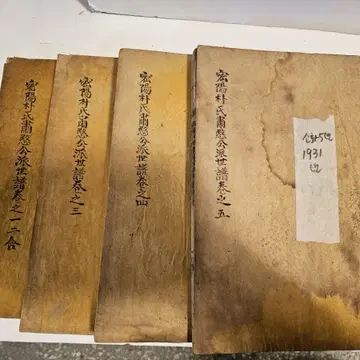 密陽朴氏肅愍公派世譜卷之一二合
密陽朴氏肅愍公派世譜卷之三
密陽朴氏肅愍公派世譜卷之四
密陽朴氏肅愍公派世譜卷之五
1931